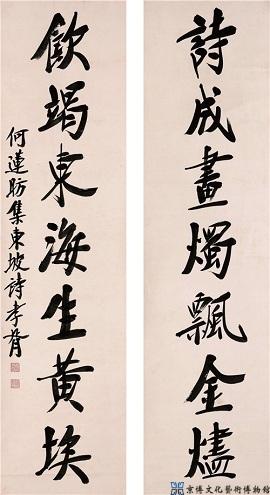 詩成畫燭飄金燼
飲竭東海生黃埃
何蓮舫集東坡詩孝胥
京博文化藝術博物館